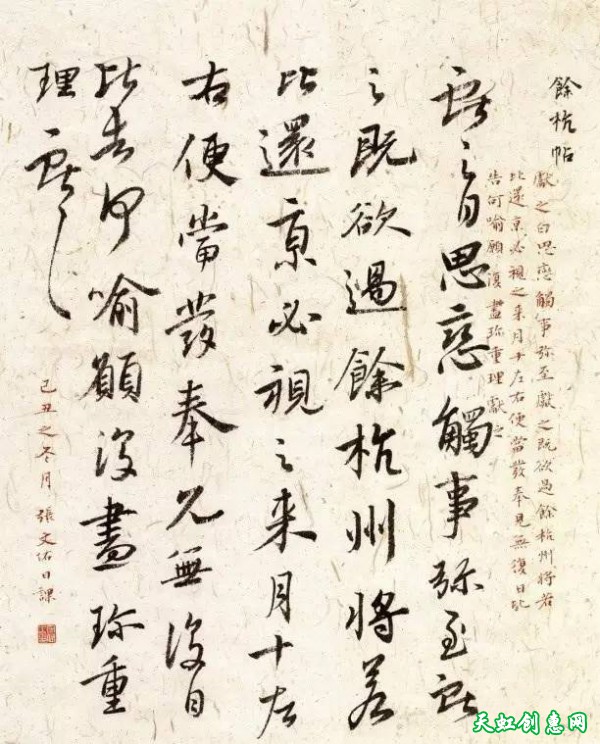 餘杭帖
獻之白思戀觸事弥至獻之既欲過餘杭州將若
比還京必視之来月十左右便當發奉見無復日比
告何喻願復盡珍重理獻之
獻之白思戀觸事弥至獻
之既欲過餘杭州將若
比還京必視之来月十左
右便當發奉見無復日
比告何喻願復盡珍重
理獻之
己丑之冬月 張文佑日課
天虹创惠网